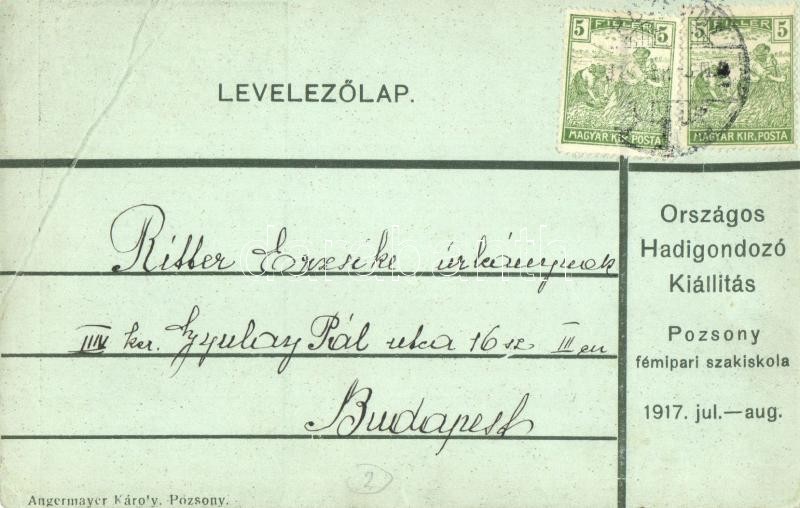 5 FILLER 5
MAGYAR KIR. POSTA
5 FILLER 5
MAGYAR KIR. POSTA
LEVELEZŐLAP.
Ritter Erzsike úrleánynak
ker. Gyulay Pál utca 16 sz. II em
Budapest
Országos
Hadigondozó
Kiállitás
Pozsony
fémipari szakiskola
1917. jul.—aug.
2
Angermayer Károly, Pozsony.